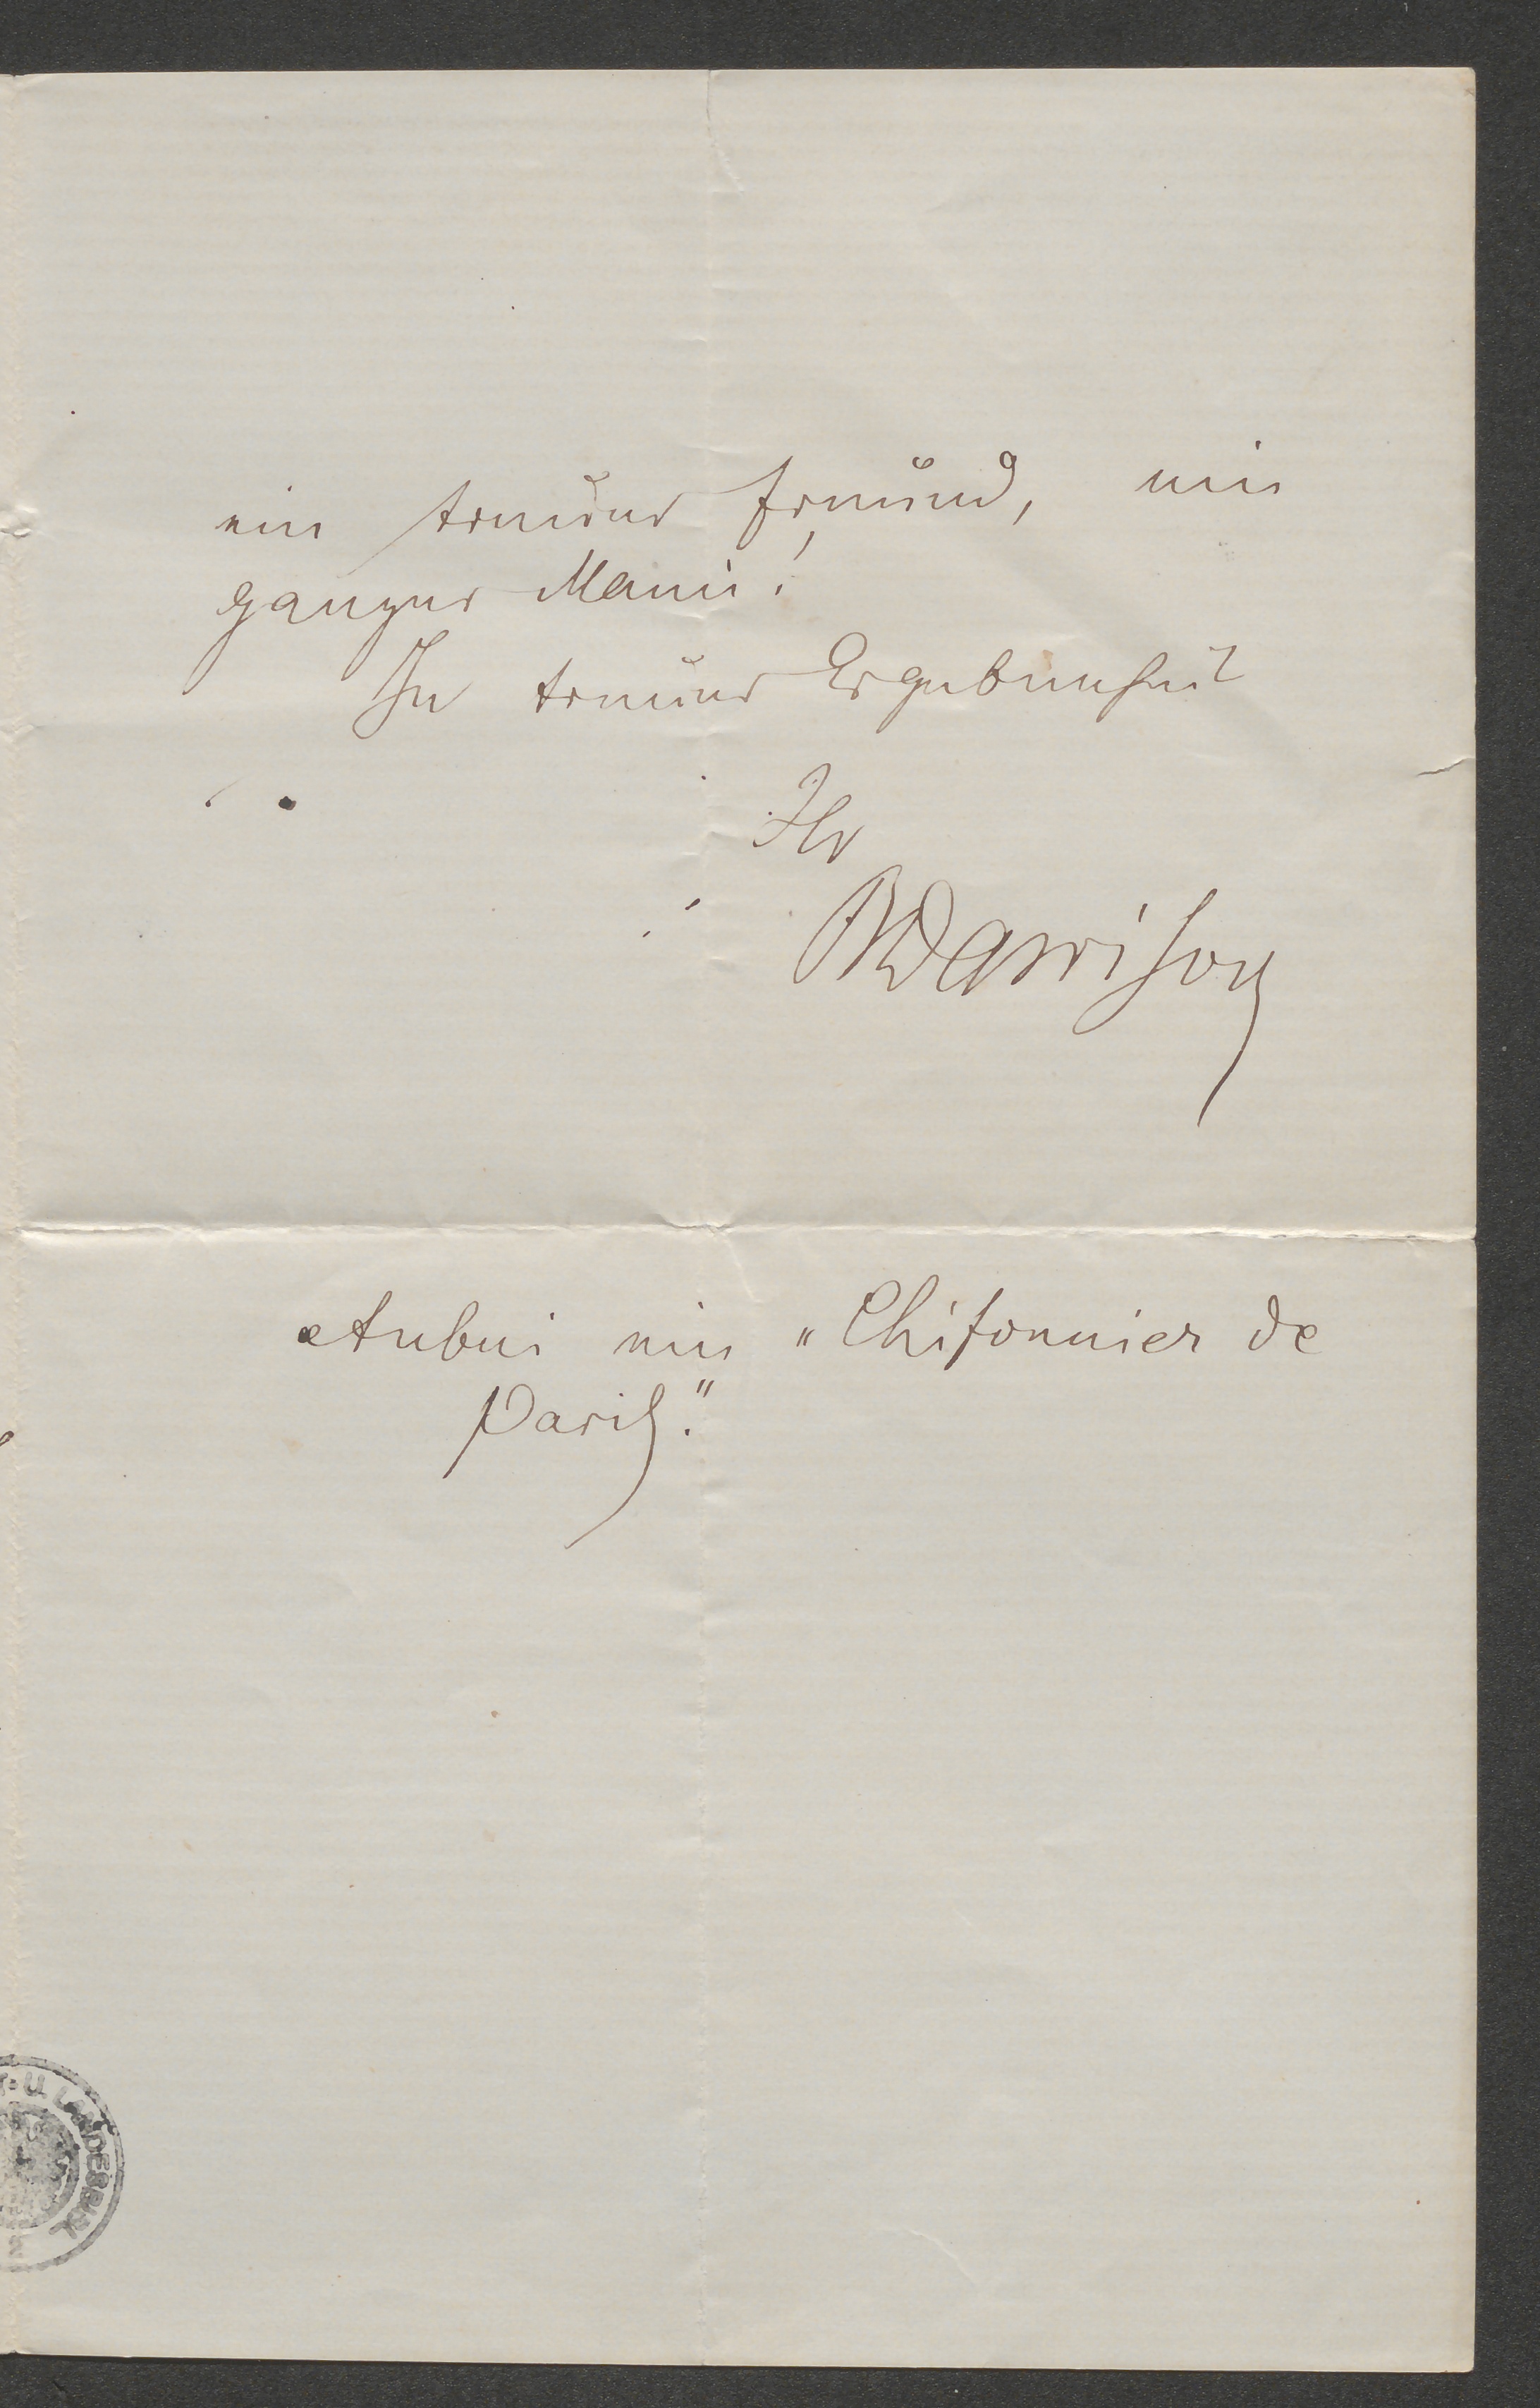 ein treuer Freund, ein
ganzer Mann!
In treuer Ergebenheit
Ihr
BDawison
Anbei ein „Chifonnier de
Paris."
U LANDESBIBL